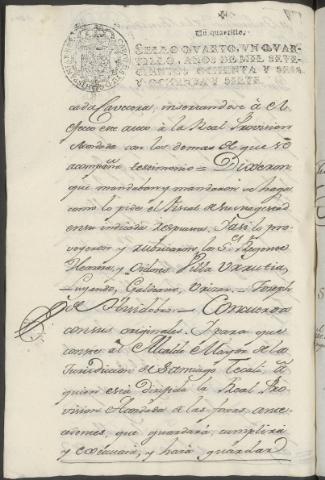 Un quartillo.
SELLO QUARTO, UN QUAR-
TILLO, AÑOS DE MIL SETE-
CIENTOS OCHENTA Y SEIS
Y OCHENTA Y SIETE.
cada Cavecera, insertandose á el
efecto ese auto á la Real Provision
Acordada con los demas de que se
acompaña testimonio = Dixeron
que mandaban y mandaron se haga
como lo pide el Fiscal de su magestad
en su indicada respuesta. Y asi lo pro-
veyeron y rubricaron los S.res Regente
Herrera, y Oidores Villa Urrutia,
Luyando, Galdeano, Urizar = Joseph
de Arrideba = Concuerda
con sus originales. Y para que
conste al Alcalde Mayor de la
Jurisdiccion de Santiago Tecali á
quien está dirigida la Real Pro-
vision Acordada de las fojas ante-
cedentes, que guardará, cumplirá
y executará, y hará guardar